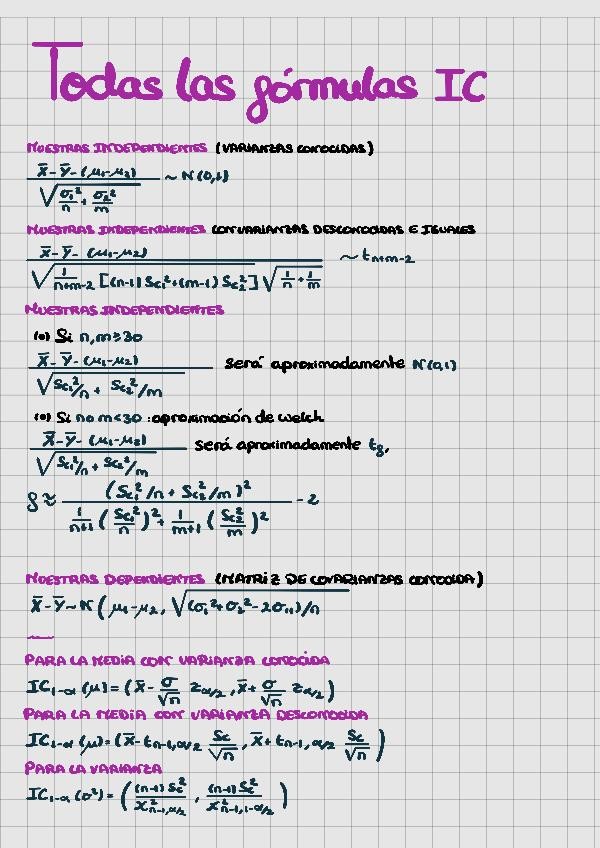 Todas las fórmulas IC
MUESTRAS INDEPENDIENTES (VARIANZAS CONOCIDAS)
(X̄ - Ȳ - (μ₁-μ₂)) / √(σ₁²/n + σ₂²/m) ~ N(0,1)
MUESTRAS INDEPENDIENTES CON VARIANZAS DESCONOCIDAS E IGUALES
(X̄ - Ȳ - (μ₁-μ₂)) / (√(1/(n+m-2) [(n-1) Sc₁² + (m-1) Sc₂²]) √(1/n + 1/m)) ~ tₙ₊ₘ₋₂
MUESTRAS INDEPENDIENTES
(o) Si n,m≥30
(X̄ - Ȳ - (μ₁-μ₂)) / √(Sc₁²/n + Sc₂²/m) será aproximadamente N(0,1)
(o) Si n o m<30 : aproximación de welch
(X̄ - Ȳ - (μ₁-μ₂)) / √(Sc₁²/n + Sc₂²/m) será aproximadamente t_f,
f ≈ (Sc₁²/n + Sc₂²/m)² / (1/(n+1) (Sc₁²/n)² + 1/(m+1) (Sc₂²/m)²) - 2
MUESTRAS DEPENDIENTES (MATRIZ DE COVARIANZAS CONOCIDA)
X̄ - Ȳ ~ N(μ₁-μ₂, √(σ₁²+σ₂²-2σ₁₁)/n
PARA LA MEDIA CON VARIANZA CONOCIDA
IC₁₋α (μ) = (x̄ - σ/√n z_α/2 , x̄ + σ/√n z_α/2)
PARA LA MEDIA CON VARIANZA DESCONOCIDA
IC₁₋α (μ) = (x̄ - t_n-1,α/2 Sc/√n , x̄ + t_n-1,α/2 Sc/√n)
PARA LA VARIANZA
IC₁₋α (σ²) = ((n-1) Sc²/χ²_n-1,α/2 , (n-1) Sc²/χ²_n-1,1-α/2)